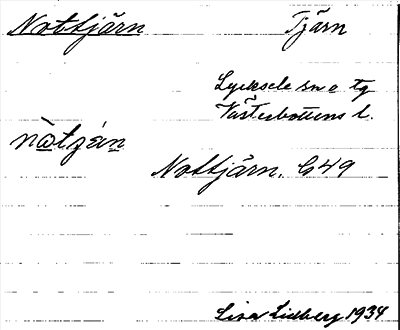 Nottjärn Tjärn
Lycksele sn o tg
Västerbottens l.
nòtzán
Nottjärn. G49
Lisa Lidberg 1934